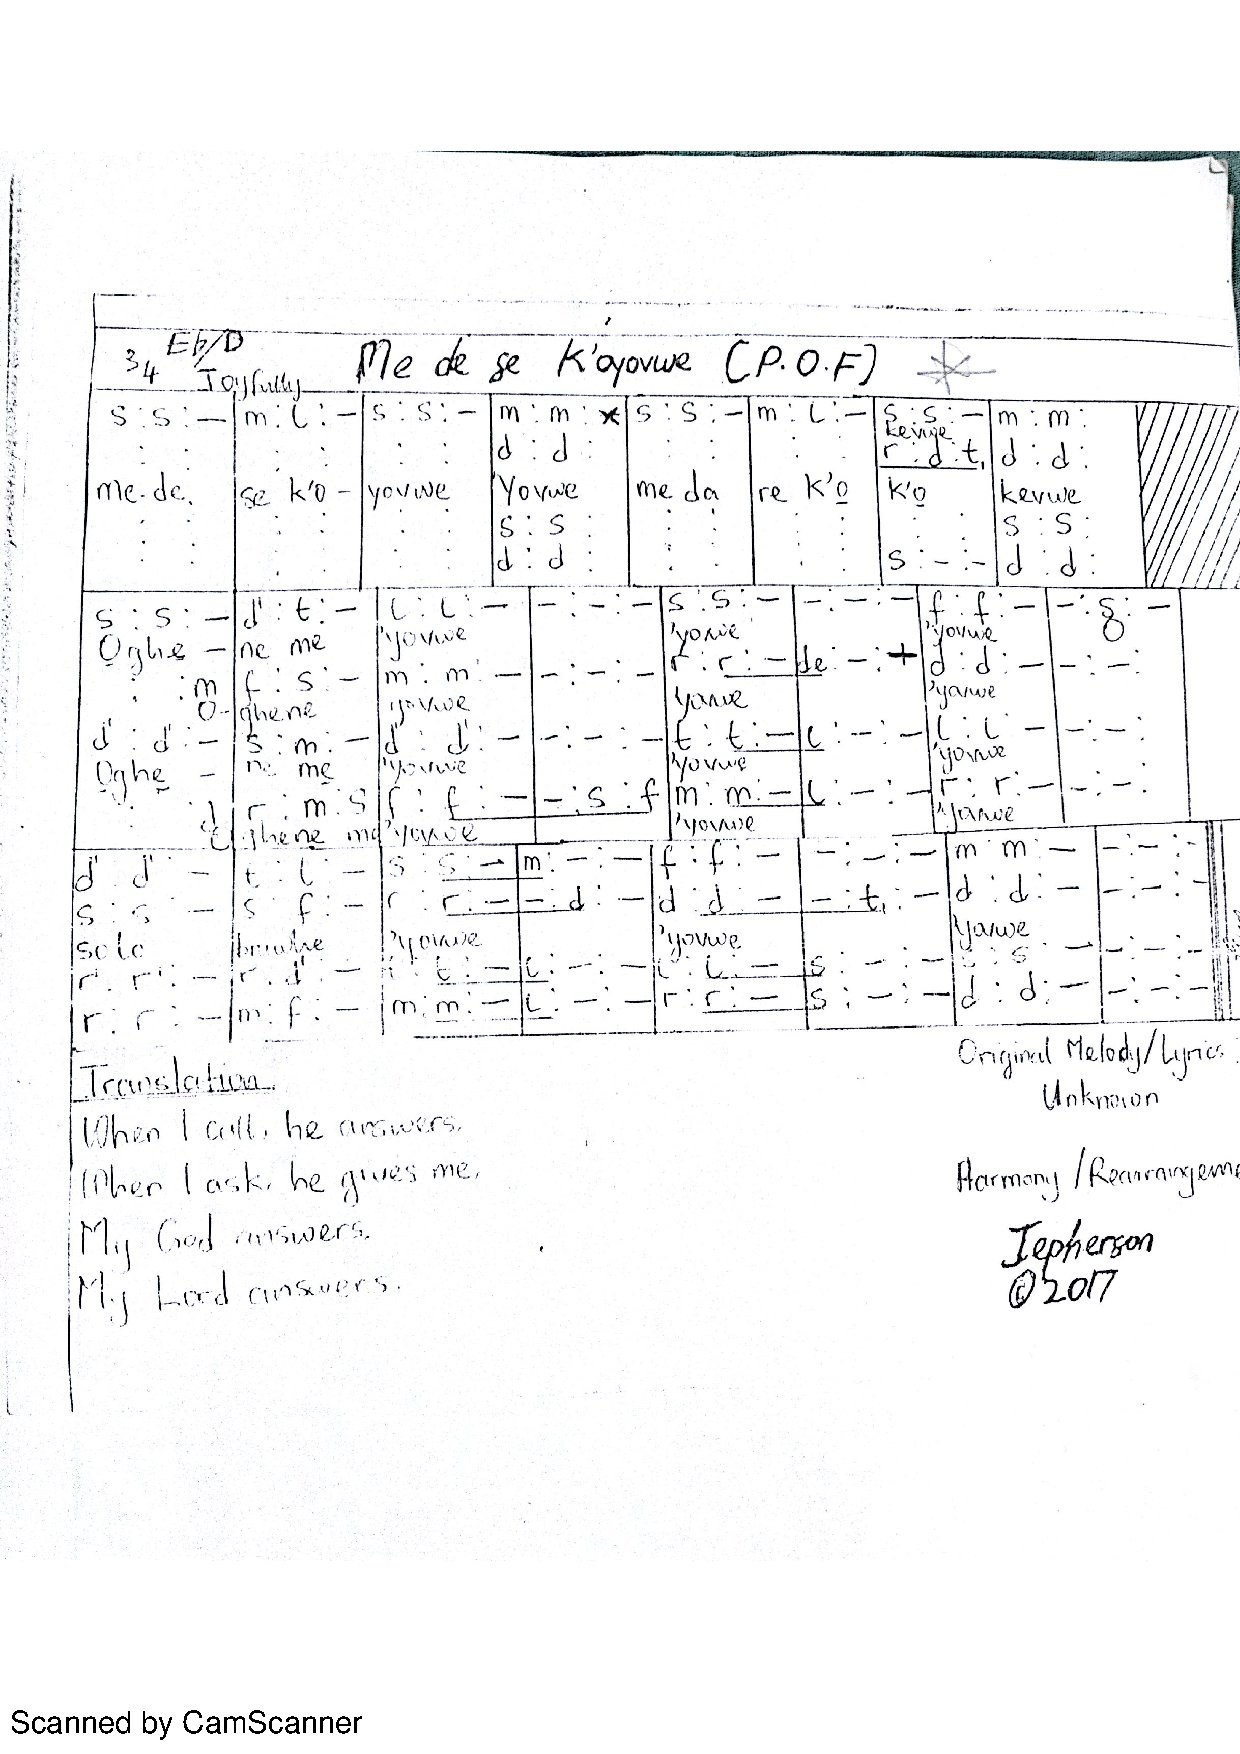 3/4 Eb/D Joyfully Me de se K'oyovwe (P.O.F)
s : s : – | m : l : – | s : s : – | m : m : x | s : s : – | m : l : – | s : s : – | m : m :
kevwe
d : d : r . d : t, d : d :
me-de. se k'o - yovwe Yovwe me da re k'o k'o kevwe
s : s s : s :
d : d : s : – : – d : d :
s : s : – | d' : t : – | l : l : – | – : – : – | s : s : – | – : – : – | f : f : – | – : s : –
Oghe – ne me 'yovwe 'yovwe 'yovwe
: : m | f : s : – | m : m : – | – : – : – | r : r : – | de : – : + | d : d : – | – : – :
O-ghene yovwe yovwe 'yovwe
d' : d' : – | s : m : – | d' : d' : – | – : – : – | t : t : – | l : – : – | l : l : – | – : – :
Oghe – ne me 'yovwe 'yovwe 'yovwe
r : m : s | f : f : – | – : s : f | m : m : – | l : – : – | r : r : – | – : – :
ghene me 'yovwe 'yovwe 'yovwe
d' d' – | t : l : – | s : s : – | m : – : – | f : f : – | – : – : – | m : m : – | – : – : –
s : s : – | s f : – | r : r : – | – : d : – | d : d – | – : t, : – | d : d : – | – : – : –
solo 'yovwe 'yovwe Yovwe
r' : r' : – | r' : d' : – | t : – | l : – : – | l : l : – | s : – : – | s : s : – | – : – : –
r : r : – | m : f : – | m : m : – | l : – : – | r : r : – | s : – : – | d : d : – | – : – : –
Original Melody/Lyrics :
Translation
Unknown
When I call, he answers.
When I ask, he gives me.
Harmony /Rearrangeme
My God answers.
Jepherson
My Lord answers.
©2017
Scanned by CamScanner